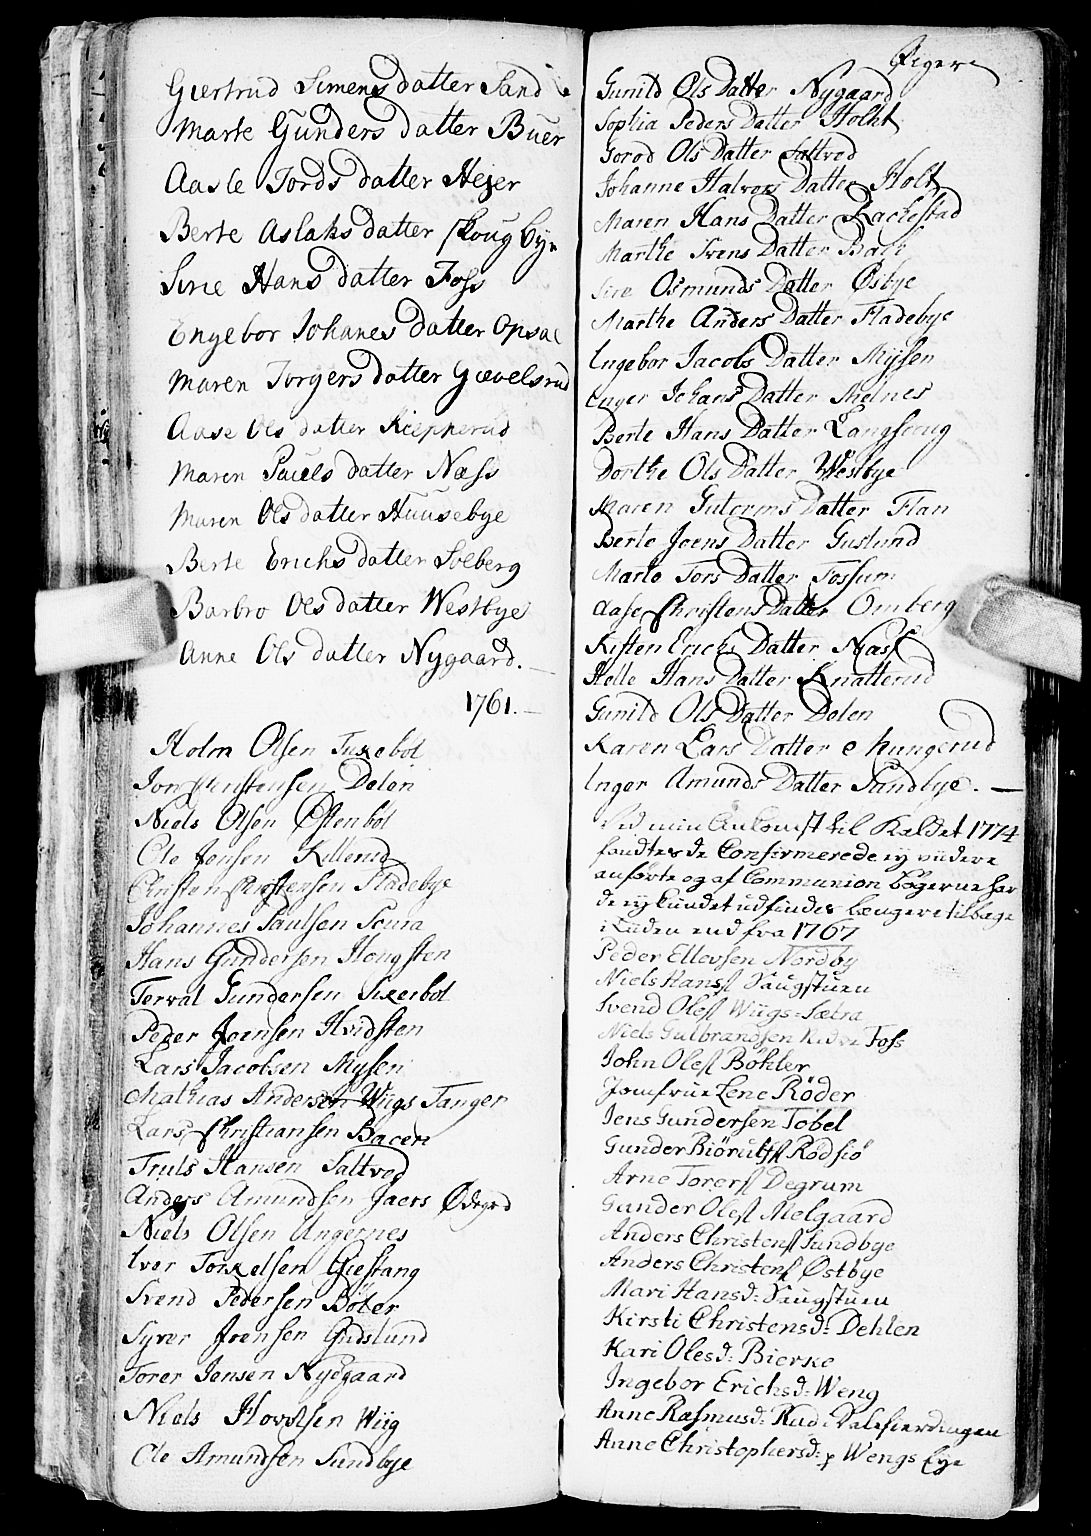 Giertrud Simens datter Sand
Marte Gunders datter Buer
Aasle Tords datter Hejer
Berte Aslaks datter Skougbye
Sirie Hans datter Foss
Engebor Johanes datter Opsal
Maren Torgers datter Gievelsrud
Aase Ols datter Kiepperud
Maren Pauels datter Næss
Maren Ols datter Huusebye
Berte Erichs datter Solberg
Barbro Ols datter Westbye
Anne Ols datter Nygaard.
1761.
Holm Olsen Tuxebøl
Jon Stenstensen Delen
Niels Olsen Østenbøl
Ole Jensen Killerud
Christen Christensen Fladebye
Johannes Paulsen Scura
Hans Gundersen Hougsten
Torval Gundersen Sixerbøl
Peder Joensen Hvidsten
Lars Jacobsen Mysen
Mathias Andersen Wiigs Tanger
Lars Christiansen Bacen
Truls Hansen Saltvod
Anders Amundsen Jaers Ødegrd
Niels Olsen Ungernes
Iver Torkelsen Giestang
Svend Pedersen Böler
Syver Joensen Gudslund
Torer Jensen Nyegaard
Niels Hovelsen Wiig
Ole Amundsen Sundbye
Piger
Gunild Ols Datter Nygaard
Sophia Peders Datter Holht
Gorod Ols Datter Saltvod
Johanne Halvors Datter Holt
Maren Hans Datter Rackestad
Marthe Svens Datter
Sire Osmunds Datter Østbye
Marthe Anders Datter Fladebye
Ingebor Jacobs Datter Mysen
Inger Johans Datter Melnes
Berte Hans Datter Langseug
Dorthe Ols Datter Westbye
Maren Gutorms Datter Flan
Berte Joens Datter Guslund
Marte Tors Datter Fossum
Aase Christens Datter Omberg
Kisten Erichs Datter Næss
Helle Hans Datter Knatterud
Gunild Ols Datter Delen
Karen Lars Datter Mungerud
Inger Amunds Datter Sundbye.
Ved min Ankomst til Kaldet 1774
fandtes de Confirmerede ey viidere
anførte og af Communion Bøgerne har
de ey kundet udfindes længere tilbage
i tiiden end fra 1767
Peder Ellevsen Nordby
Niels Hanss Haugstuen
Svend Oless Wiigs-Sætra
Niels Gulbrandsen Nedre Foss
John Oless Böhler
Jomfrue Lene Röder
Jens Gundersen Töbel
Gunder Biörulfss Rödsiö
Arne Torerss Degrum
Gunder Oless Melgaard
Anders Christenss Sundbye
Anders Christenss Østbye
Mari Hansd: Haugstuen
Kirsti Christensd: Dehlen
Kari Olesd: Bierke
Ingebor Erichsd: Weng
Anne Rasmusd: Rud i Dalefierdingen
Anne Christophersd: p Wengs Eye